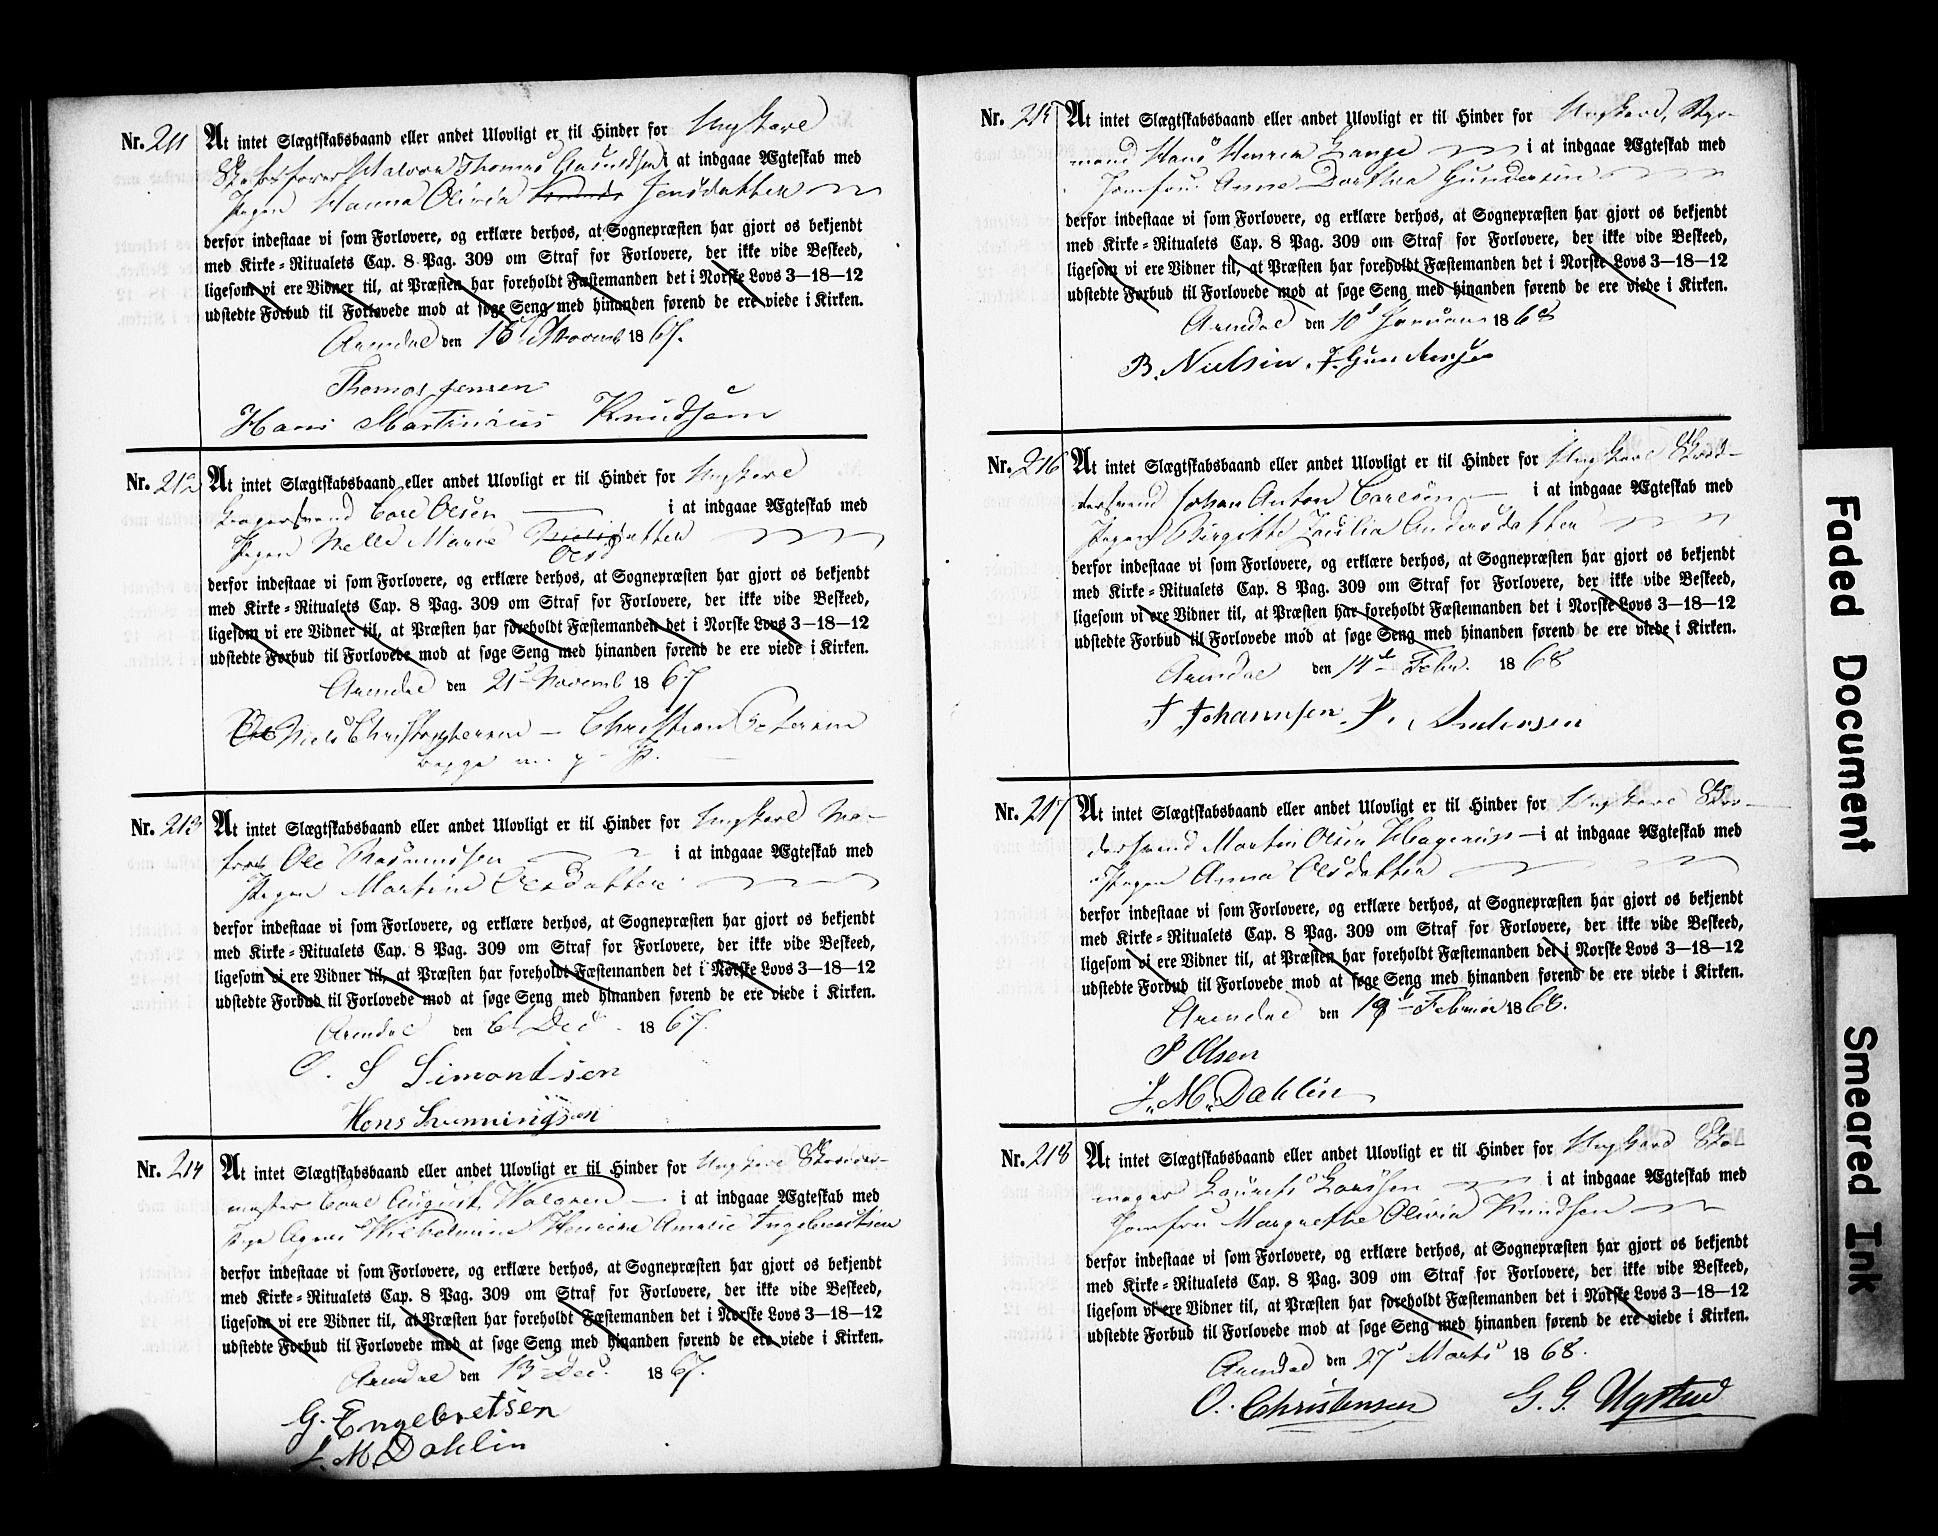 Nr. 211 At intet Slægtskabsbaand eller andet Ulovligt er til Hinder for Ungkarl
Skibsfører Halvor Thomas Knudsen i at indgaae Ægteskab med
Pigen Hanna Olivia Jensdatter
derfor indestaae vi som Forlovere, og erklære derhos, at Sognepræsten har gjort os bekjendt
med Kirke-Ritualets Cap. 8 Pag. 309 om Straf for Forlovere, der ikke vide Beskeed,
ligesom vi ere Vidner til, at Præsten har foreholdt Fæstemanden det i Norske Lovs 3—18—12
udstedte Forbud til Forlovede mod at søge Seng med hinanden førend de ere viede i Kirken.
Arendal den 15 Novemb 1867.
Thomas Jensen
Hans Martinius Knudsen
Nr. 212 At intet Slægtskabsbaand eller andet Ulovligt er til Hinder for Ungkarl
Carl Olsen i at indgaae Ægteskab med
Pigen Nelle Marie Olsdatter
derfor indestaae vi som Forlovere, og erklære derhos, at Sognepræsten har gjort os bekjendt
med Kirke-Ritualets Cap. 8 Pag. 309 om Straf for Forlovere, der ikke vide Beskeed,
ligesom vi ere Vidner til, at Præsten har foreholdt Fæstemanden det i Norske Lovs 3—18—12
udstedte Forbud til Forlovede mod at søge Seng med hinanden førend de ere viede i Kirken.
Arendal den 21 Novemb 1867
Niels Christophersen — Christian Petersen
begge m. p. P.
Nr. 213 At intet Slægtskabsbaand eller andet Ulovligt er til Hinder for Ungkarl Ma-
tros Ole Rasmussen i at indgaae Ægteskab med
Pigen Martine Olsdatter
derfor indestaae vi som Forlovere, og erklære derhos, at Sognepræsten har gjort os bekjendt
med Kirke-Ritualets Cap. 8 Pag. 309 om Straf for Forlovere, der ikke vide Beskeed,
ligesom vi ere Vidner til, at Præsten har foreholdt Fæstemanden det i Norske Lovs 3—18—12
udstedte Forbud til Forlovede mod at søge Seng med hinanden førend de ere viede i Kirken.
Arendal den 6 Dec 1867.
O. S Simondsen
Hans
Nr. 214 At intet Slægtskabsbaand eller andet Ulovligt er til Hinder for Ungkarl Skrædder-
mester Carl August Waloren i at indgaae Ægteskab med
Pige Agnes Wilhelmine Henrine Amalie Engebretsen
derfor indestaae vi som Forlovere, og erklære derhos, at Sognepræsten har gjort os bekjendt
med Kirke-Ritualets Cap. 8 Pag. 309 om Straf for Forlovere, der ikke vide Beskeed,
ligesom vi ere Vidner til, at Præsten har foreholdt Fæstemanden det i Norske Lovs 3—18—12
udstedte Forbud til Forlovede mod at søge Seng med hinanden førend de ere viede i Kirken.
Arendal den 13 Dec. 1867.
G. Engebretsen
J. M. Dahlin
Nr. 215 At intet Slægtskabsbaand eller andet Ulovligt er til Hinder for Ungkarl, Styr-
mand Hans Henrik Lange i at indgaae Ægteskab med
Jomfru Anne Dorthea Gundersen
derfor indestaae vi som Forlovere, og erklære derhos, at Sognepræsten har gjort os bekjendt
med Kirke-Ritualets Cap. 8 Pag. 309 om Straf for Forlovere, der ikke vide Beskeed,
ligesom vi ere Vidner til, at Præsten har foreholdt Fæstemanden det i Norske Lovs 3—18—12
udstedte Forbud til Forlovede mod at søge Seng med hinanden førend de ere viede i Kirken.
Arendal den 10 Januar 1868
B. Nielsen. J. Gundersen
Nr. 216 At intet Slægtskabsbaand eller andet Ulovligt er til Hinder for Ungkarl Skræd-
dersvend Johan Anton Carlsen i at indgaae Ægteskab med
Pigen Birgitte Cecilia Andersdatter
derfor indestaae vi som Forlovere, og erklære derhos, at Sognepræsten har gjort os bekjendt
med Kirke-Ritualets Cap. 8 Pag. 309 om Straf for Forlovere, der ikke vide Beskeed,
ligesom vi ere Vidner til, at Præsten har foreholdt Fæstemanden det i Norske Lovs 3—18—12
udstedte Forbud til Forlovede mod at søge Seng med hinanden førend de ere viede i Kirken.
Arendal den 14 Febr. 1868
J Johannsen P. Andersen
Nr. 217 At intet Slægtskabsbaand eller andet Ulovligt er til Hinder for Ungkarl Skræ-
dersvend Martin Olsen i at indgaae Ægteskab med
Pigen Anna Olsdatter
derfor indestaae vi som Forlovere, og erklære derhos, at Sognepræsten har gjort os bekjendt
med Kirke-Ritualets Cap. 8 Pag. 309 om Straf for Forlovere, der ikke vide Beskeed,
ligesom vi ere Vidner til, at Præsten har foreholdt Fæstemanden det i Norske Lovs 3—18—12
udstedte Forbud til Forlovede mod at søge Seng med hinanden førend de ere viede i Kirken.
Arendal den 19 Februar 1868.
P Olsen
J. M. Dahlin
Nr. 218 At intet Slægtskabsbaand eller andet Ulovligt er til Hinder for Ungkarl Sko-
mager Laurits Larssen i at indgaae Ægteskab med
Jomfru Margrethe Olivia Knudsen
derfor indestaae vi som Forlovere, og erklære derhos, at Sognepræsten har gjort os bekjendt
med Kirke-Ritualets Cap. 8 Pag. 309 om Straf for Forlovere, der ikke vide Beskeed,
ligesom vi ere Vidner til, at Præsten har foreholdt Fæstemanden det i Norske Lovs 3—18—12
udstedte Forbud til Forlovede mod at søge Seng med hinanden førend de ere viede i Kirken.
Arendal den 27 Marts 1868.
O. Christensen G. G. Ugstad
Faded Document
Smeared Ink